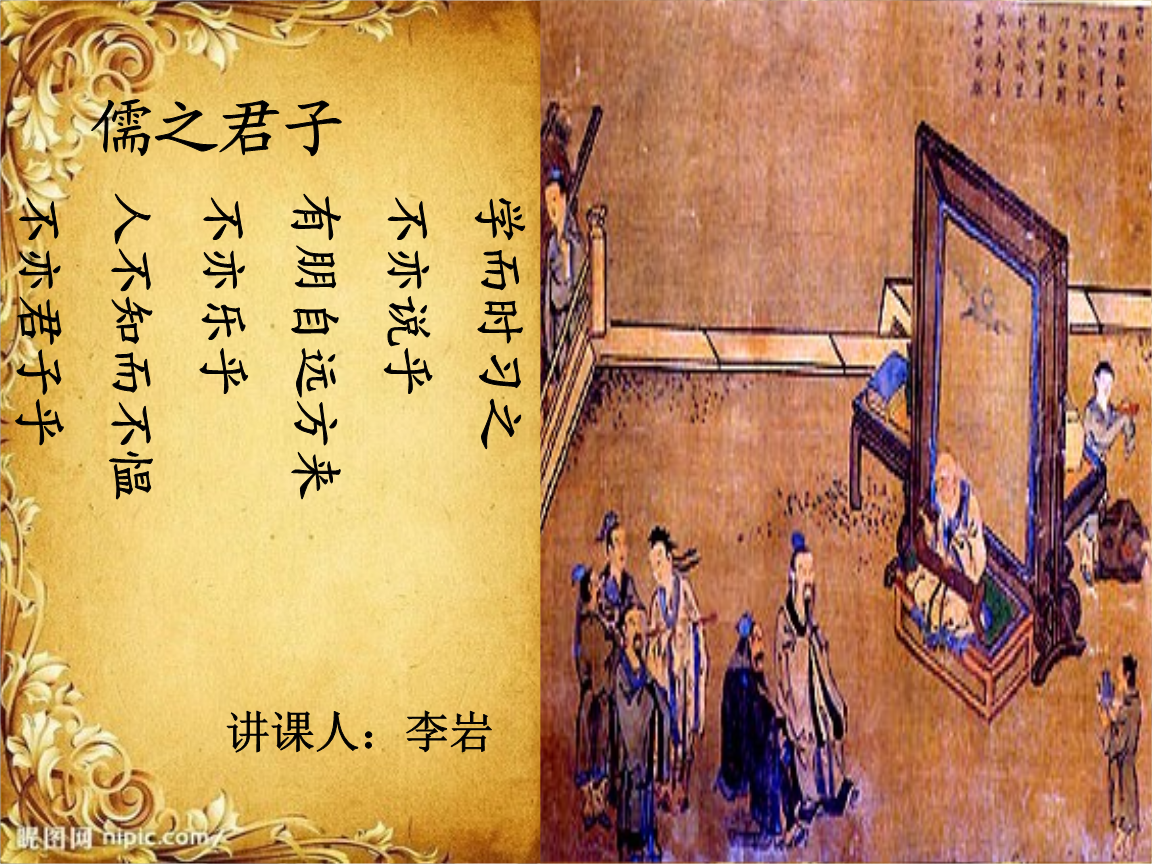 儒之君子
学而时习之
不亦说乎
有朋自远方来
不亦乐乎
人不知而不愠
不亦君子乎
讲课人：李岩
昵图网 nipic.com/